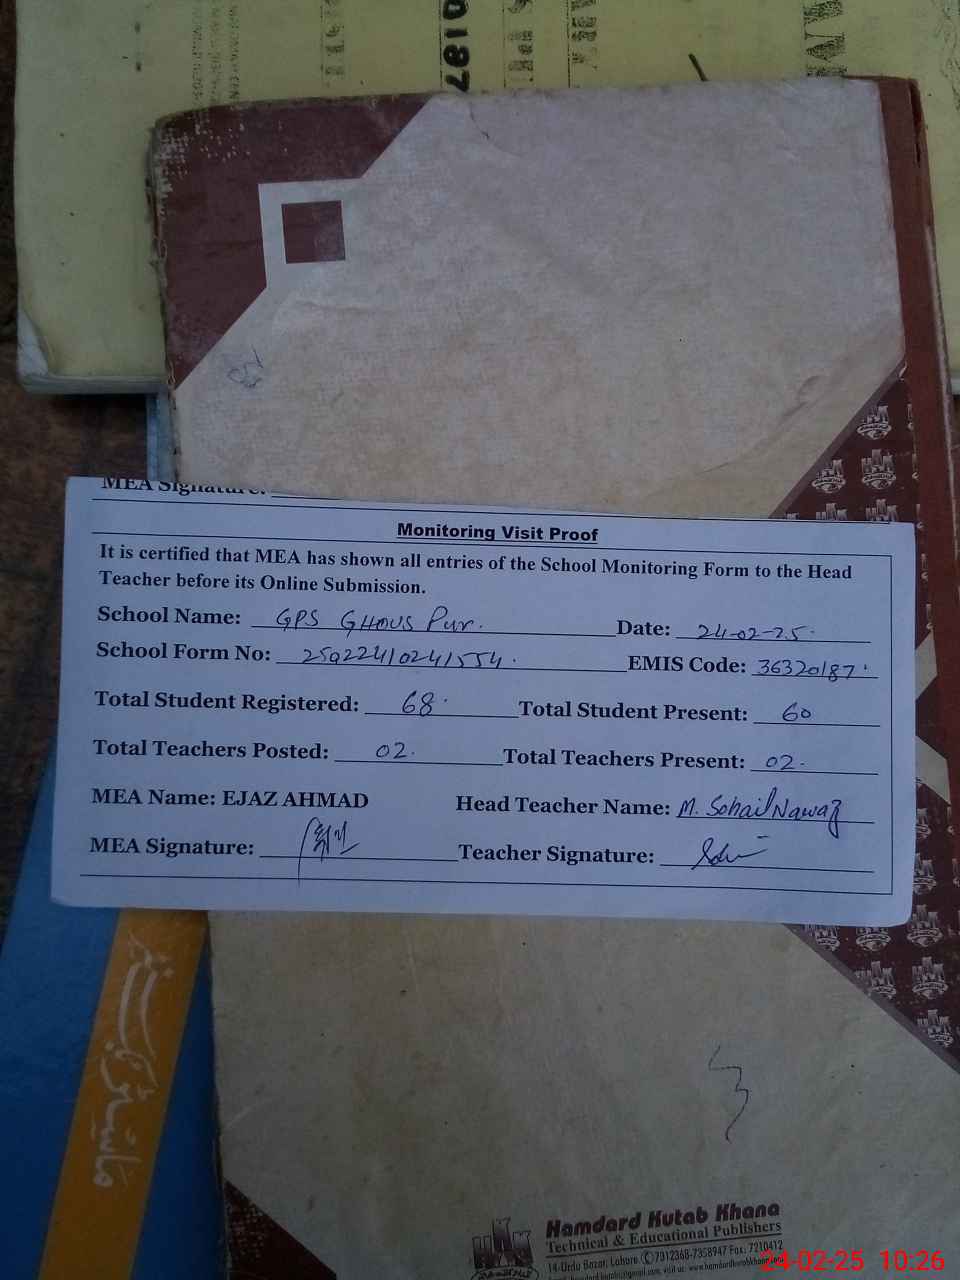 0187
MEA Signature:
Monitoring Visit Proof
It is certified that MEA has shown all entries of the School Monitoring Form to the Head
Teacher before its Online Submission.
School Name: GPS Ghous Pur. Date: 24-02-25.
School Form No: 25022410241554. EMIS Code: 36320187
Total Student Registered: 68. Total Student Present: 60
Total Teachers Posted: 02. Total Teachers Present: 02.
MEA Name: EJAZ AHMAD Head Teacher Name: M. Sohail Nawaz
MEA Signature: Teacher Signature:
Hamdard Kutab Khana
Technical & Educational Publishers
14-Urdu Bazar, Lahore. 7312368-7358947 Fax: 7210412
24-02-25 10:26